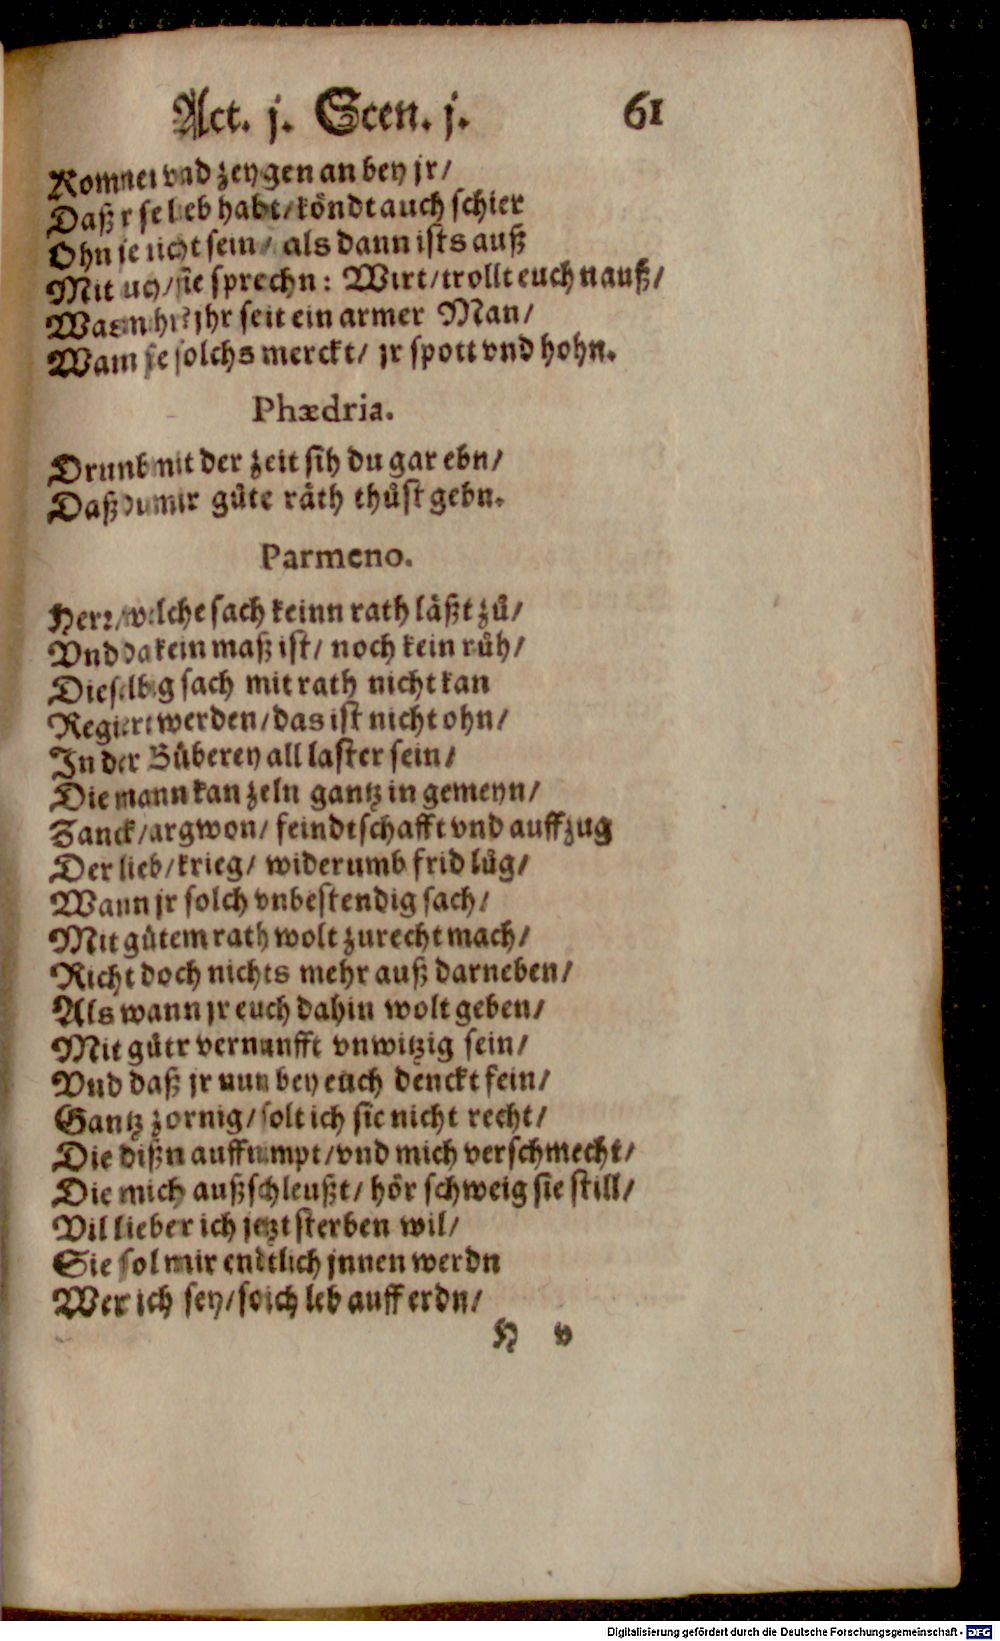 Act. j. Scen. j. 61
Kommet vnd zeygen an bey jr/
Daß lieb habt/ köndt auch schier
Ohn sie nicht sein/ als dann ists auß
Mit uch/ sie sprechn: Wirt/ trollt euch nauß/
jhr seit ein armer Man/
Wann sie solchs merckt/ jr spott vnd hohn.
Phædria.
Drumb mit der zeit sih du gar ebn/
Daß du mir gůte räth thůst gebn.
Parmeno.
Herr/ welche sach keinn rath läßt zů/
Vnd da kein maß ist/ noch kein růh/
Dieselbig sach mit rath nicht kan
Regiert werden/ das ist nicht ohn/
In der Bůberey all laster sein/
Die mann kan zeln gantz in gemeyn/
Zanck/ argwon/ feindtschafft vnd auffzug
Der lieb/ krieg/ widerumb frid lůg/
Wann jr solch vnbestendig sach/
Mit gůtem rath wolt zurecht mach/
Richt doch nichts mehr auß darneben/
Als wann jr euch dahin wolt geben/
Mit gůtr vernunfft vnwitzig sein/
Vnd daß jr nun bey euch denckt fein/
Gantz zornig/ solt ich sie nicht recht/
Die dißn auffnimpt/ vnd mich verschmecht/
Die mich außschleußt/ hör schweig sie still/
Vil lieber ich jetzt sterben wil/
Sie sol mir endtlich jnnen werdn
Wer ich sey/ so ich leb auff erdn/
H v
Digitalisierung gefördert durch die Deutsche Forschungsgemeinschaft - DFG